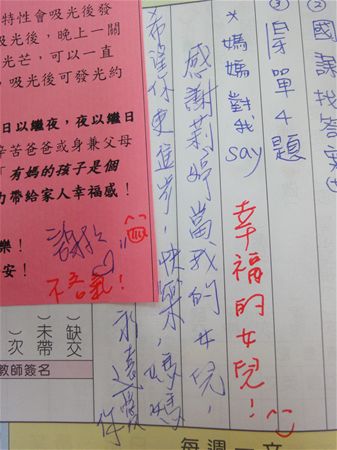 ②國課找答案
③單4題
*媽媽對我say
幸福的女兒!
感謝莉婷當我的女兒,
希望你更進步,快樂,媽媽
永遠愛你
特性會吸光後發
吸光後,晚上一關
光芒,可以一直
吸光後可發光約
日以繼夜,夜以繼日
辛苦爸爸或身兼父母
「有媽的孩子是個
力帶給家人幸福感!
樂!
安!
不客氣!
缺交
未帶
)次
教師簽名
每週一文